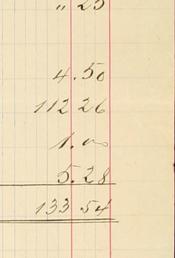 " 25
4.50
112 26
1.00
5.28
133.54